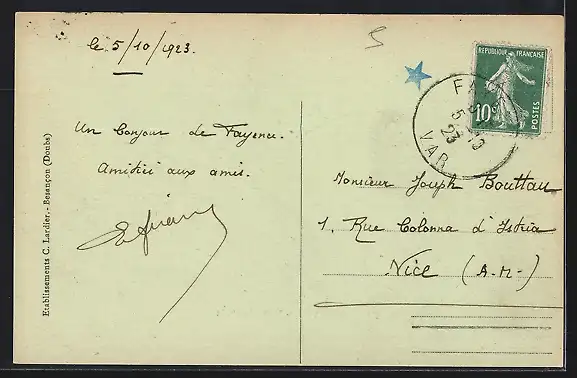 le 5/10/1923.
5
RÉPUBLIQUE FRANÇAISE
10c
POSTES
VAR
5 - 10
23
Un bonjour de Fayence.
Amitiés aux amis.
Monsieur Joseph Bouttau
1, Rue Colonna d'Istria
Nice (A.-M-)
Etablissements C. Lardier. - Besançon (Doubs)